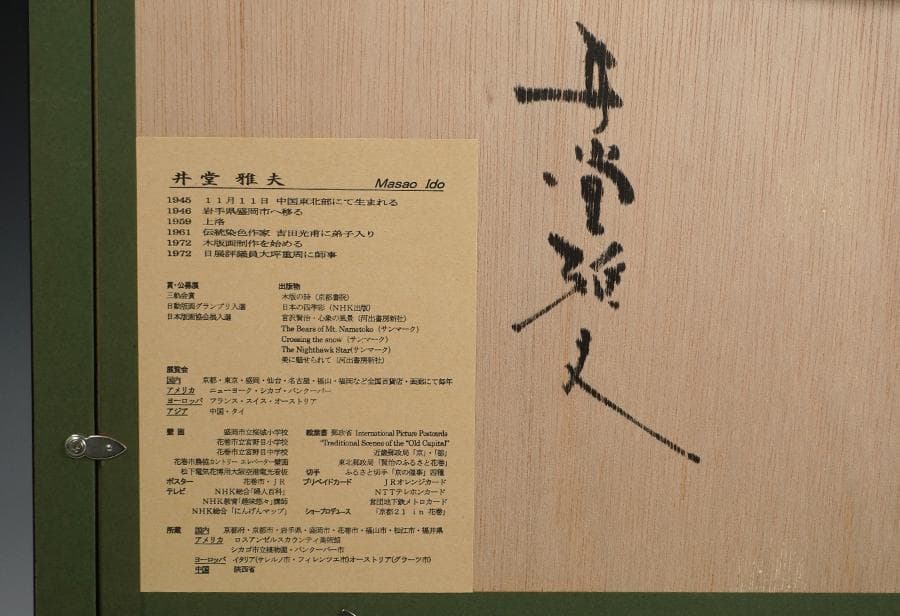 井堂雅夫
井堂 雅夫 Masao Ido
1945 11月11日 中国東北部にて生まれる
1946 岩手県盛岡市へ移る
1959 上洛
1961 伝統染色作家 吉田光甫に弟子入り
1972 木版画制作を始める
1972 日展評議員大坪重周に師事
賞・公募展
三軌会賞
日動版画グランプリ入選
日本版画協会展入選
出版物
木版の詩（京都書院）
日本の四季彩（NHK出版）
宮沢賢治・心象の風景（河出書房新社）
The Bears of Mt. Nametoko（サンマーク）
Crossing the snow（サンマーク）
The Nighthawk Star(サンマーク)
美に魅せられて（河出書房新社）
展覧会
国内 京都・東京・盛岡・仙台・名古屋・福山・福岡など全国百貨店・画廊にて毎年
アメリカ ニューヨーク・シカゴ・バンクーバー
ヨーロッパ フランス・スイス・オーストリア
アジア 中国・タイ
壁画 盛岡市立桜城小学校
花巻市立宮野目小学校
花巻市立宮野目中学校
花巻市農協カントリー エレベーター壁画
松下電気花博用大阪空港電光看板
ポスター 花巻市・JR
テレビ NHK総合「婦人百科」
NHK教育「趣味悠々」講師
NHK総合「にんげんマップ」
絵葉書 郵政省 International Picture Postcards
"Traditional Scenes of the "Old Capital"
近畿郵政局「京」・「都」
東北郵政局「賢治のふるさと花巻」
切手 ふるさと切手「京の催事」四種
プリペイドカード JRオレンジカード
NTTテレホンカード
営団地下鉄メトロカード
ショープロデュース 「京都21 in 花巻」
所蔵 国内 京都府・京都市・岩手県・盛岡市・花巻市・福山市・松江市・福井県
アメリカ ロスアンゼルスカウンティ美術館
シカゴ市立植物園・バンクーバー市
ヨーロッパ イタリア(サレルノ市・フィレンツエ市)オーストリア(グラーツ市)
中国 陝西省